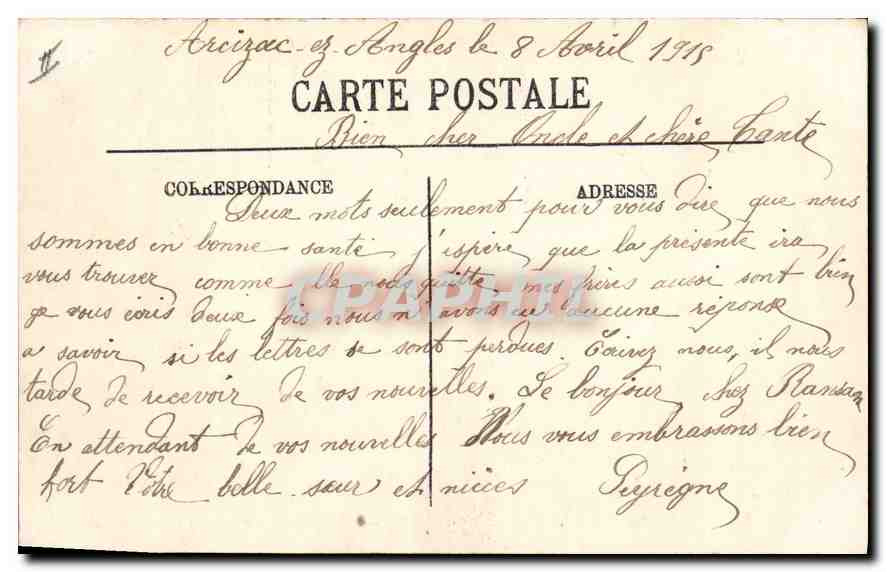 Arcizac-ez-Angles le 8 Avril 1915
CARTE POSTALE
Bien cher Oncle et chère Tante
CORRESPONDANCE
ADRESSE
Deux mots seulement pour vous dire que nous
sommes en bonne santé j'ispère que la présente ira
vous trouver comme lle nous quitte mes frères aussi sont bien
je vous écris deux fois nous n'avons eu aucune réponse
a savoir si les lettres se sont perdues. Ecrivez nous, il nous
tarde de recevoir de vos nouvelles. Le bonjour chez Ransan
En attendant de vos nouvelles Nous vous embrassons bien
fort Votre belle-sœur et nièces Peyrègne
CPAPHIL